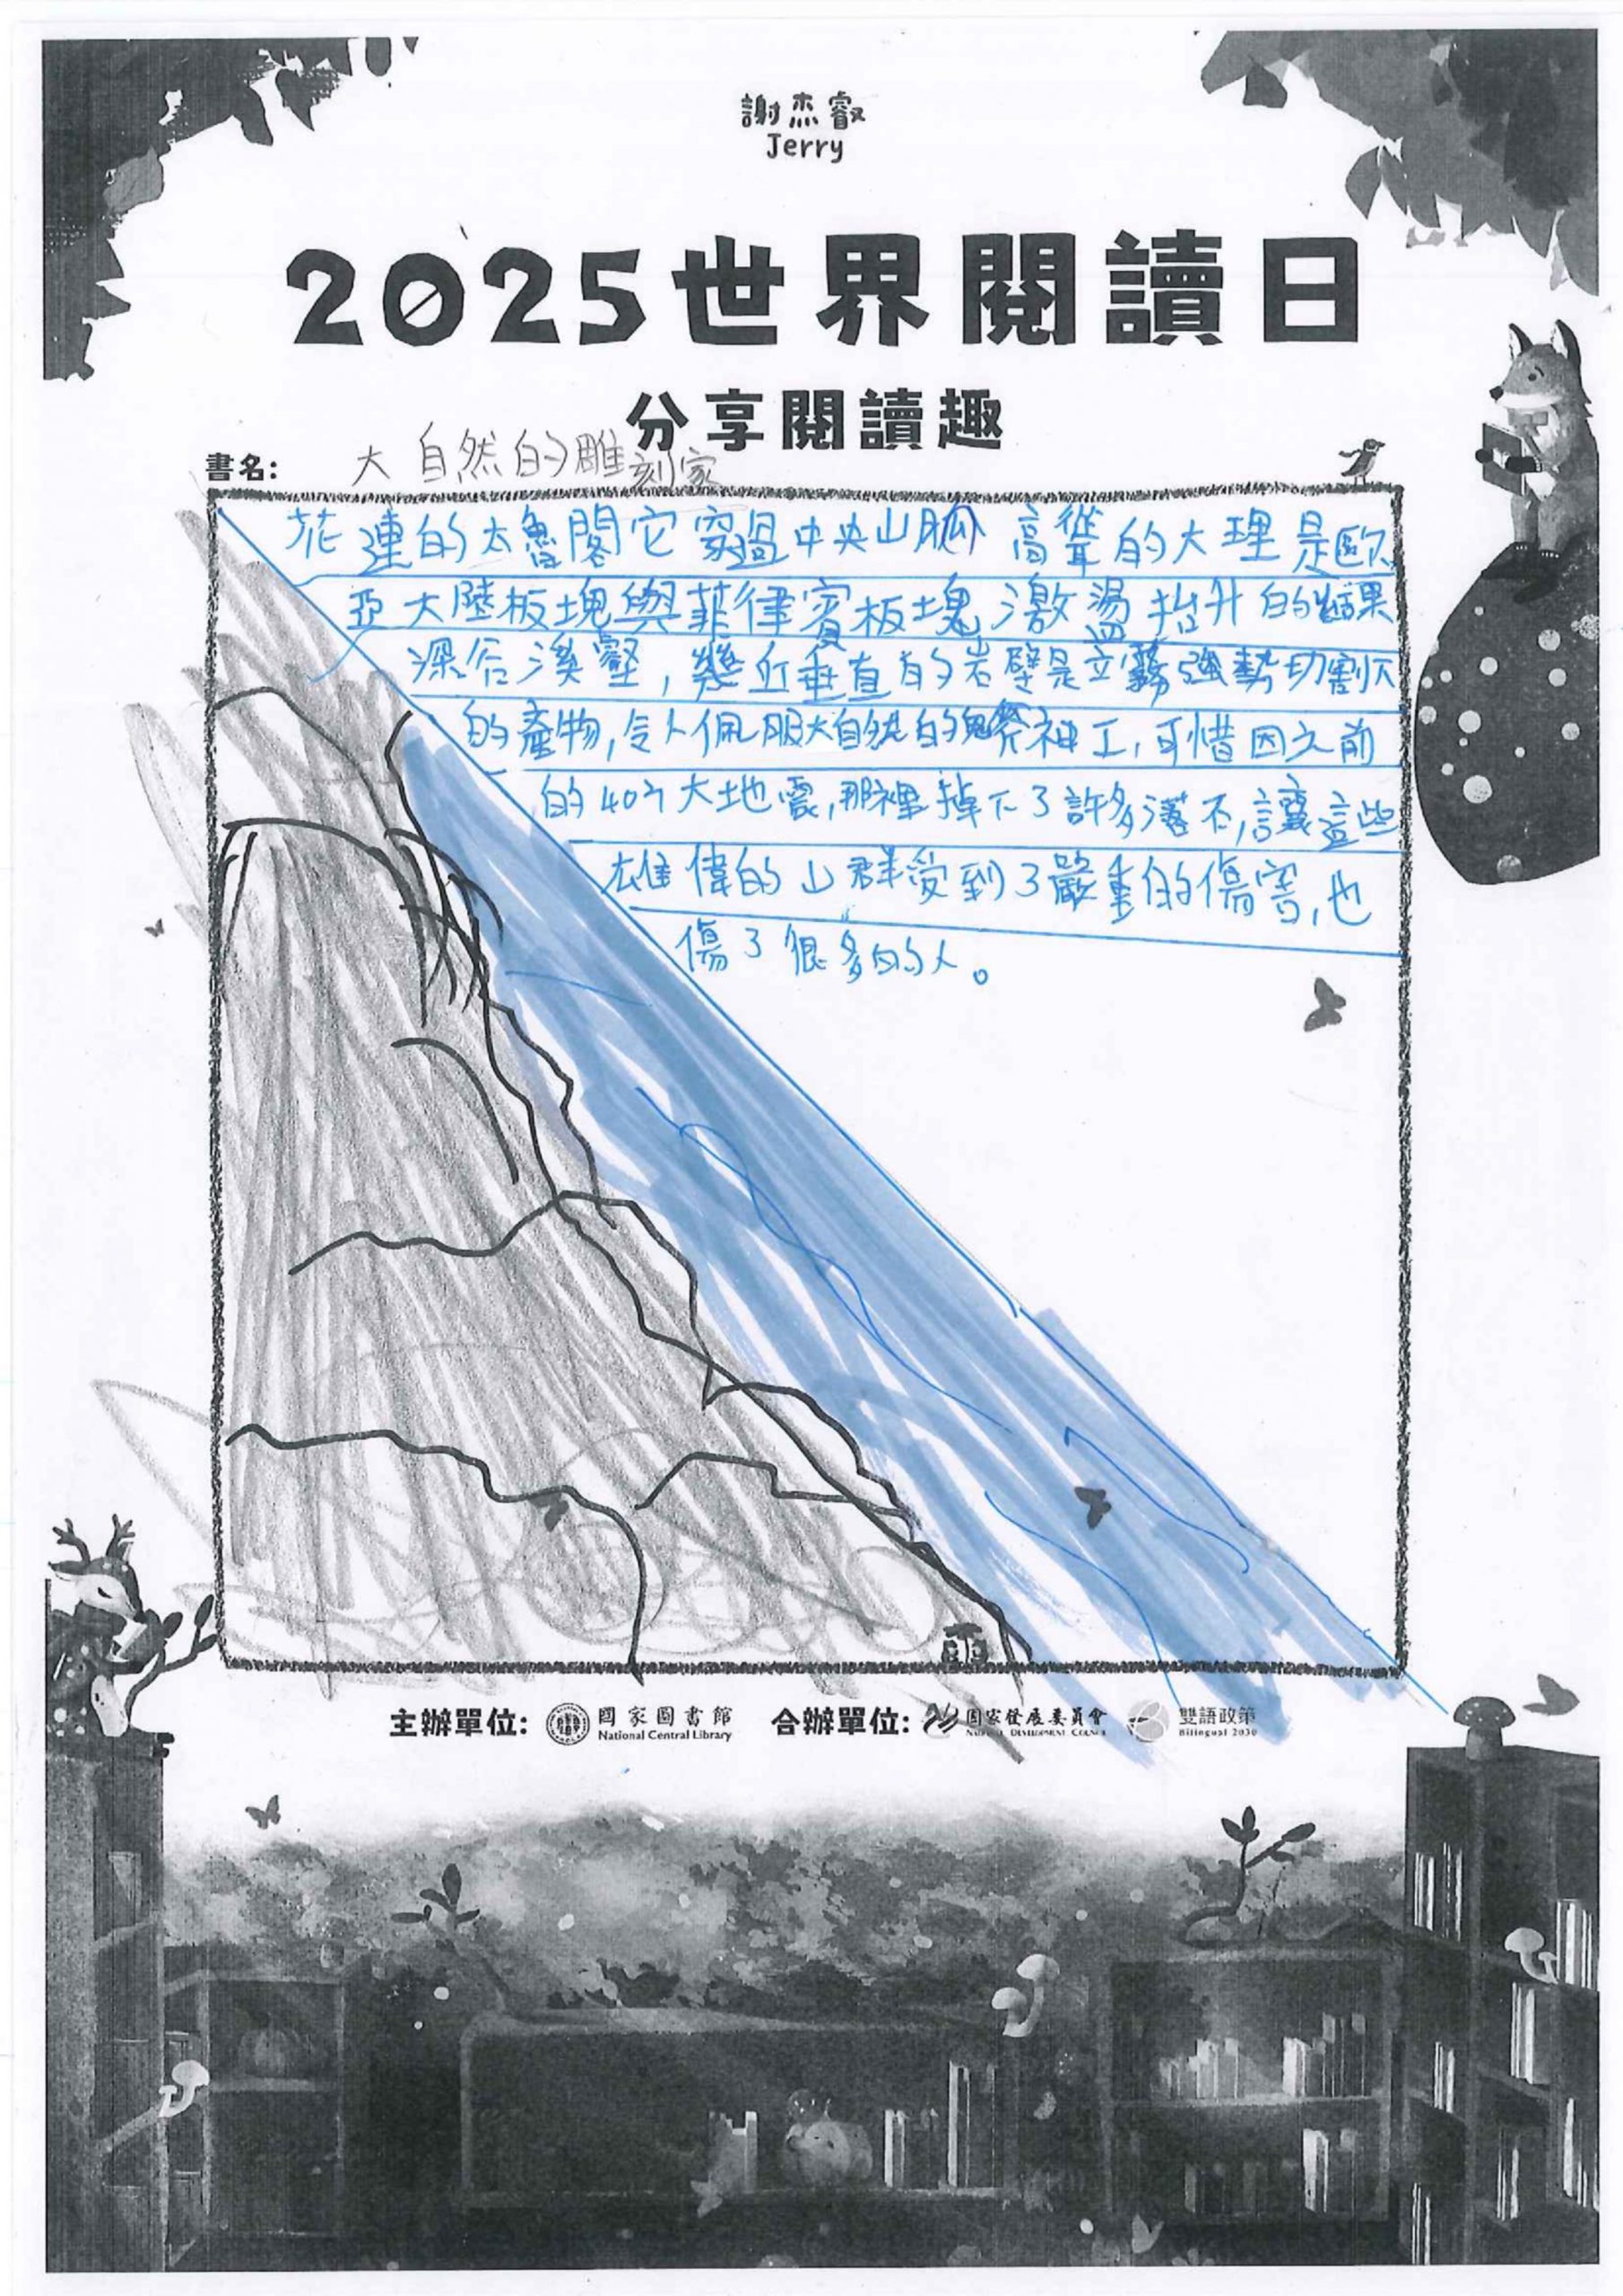 謝杰叡
Jerry
2025世界閱讀日
分享閱讀趣
書名: 大自然的雕刻家
花蓮的太魯閣它穿過中央山脈 高聳的大理是歐
亞大陸板塊與菲律賓板塊激盪抬升的結果
深谷溪壑,幾近垂直的岩壁是立霧強勢切割下
的產物,令人佩服大自然的鬼斧神工,可惜因之前
的403大地震,那裡掉下了許多落石,讓這些
雄偉的山群受到了嚴重的傷害,也
傷了很多的人。
主辦單位: 國家圖書館 National Central Library 合辦單位: 國家發展委員會 National Development Council 雙語政策 Bilingual 2030